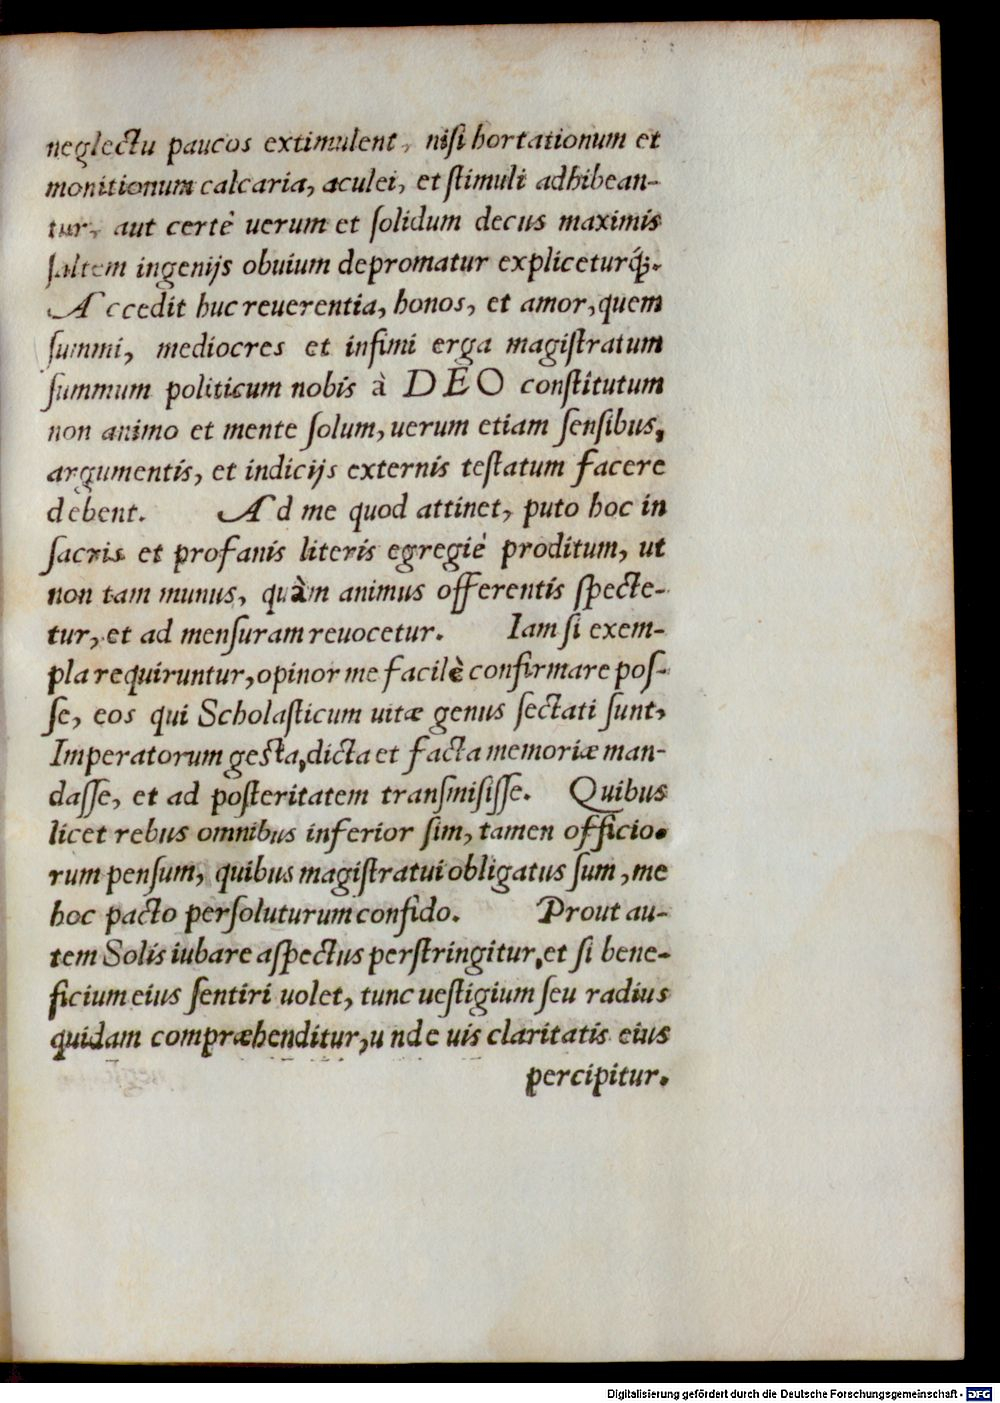 neglectu paucos extimulent, niſi hortationum et
monitionum calcaria, aculei, et ſtimuli adhibean-
tur, aut certè uerum et ſolidum decus maximis
ſaltem ingenijs obuium depromatur expliceturq́;.
Accedit huc reuerentia, honos, et amor, quem
ſummi, mediocres et infimi erga magiſtratum
ſummum politicum nobis à DEO conſtitutum
non animo et mente ſolum, uerum etiam ſenſibus,
argumentis, et indicijs externis teſtatum facere
debent. Ad me quod attinet, puto hoc in
ſacris et profanis literis egregiè proditum, ut
non tam munus, quàm animus offerentis ſpecte-
tur, et ad menſuram reuocetur. Iam ſi exem-
pla requiruntur, opinor me facilè confirmare poſ-
ſe, eos qui Scholaſticum uitæ genus ſectati ſunt,
Imperatorum geſta, dicta et facta memoriæ man-
daſſe, et ad poſteritatem tranſmiſiſſe. Quibus
licet rebus omnibus inferior ſim, tamen officio-
rum penſum, quibus magiſtratui obligatus ſum, me
hoc pacto perſoluturum confido. Prout au-
tem Solis iubare aſpectus perſtringitur, et ſi bene-
ficium eius ſentiri uolet, tunc ueſtigium ſeu radius
quidam compræhenditur, unde uis claritatis eius
percipitur.
Digitalisierung gefördert durch die Deutsche Forschungsgemeinschaft - DFG